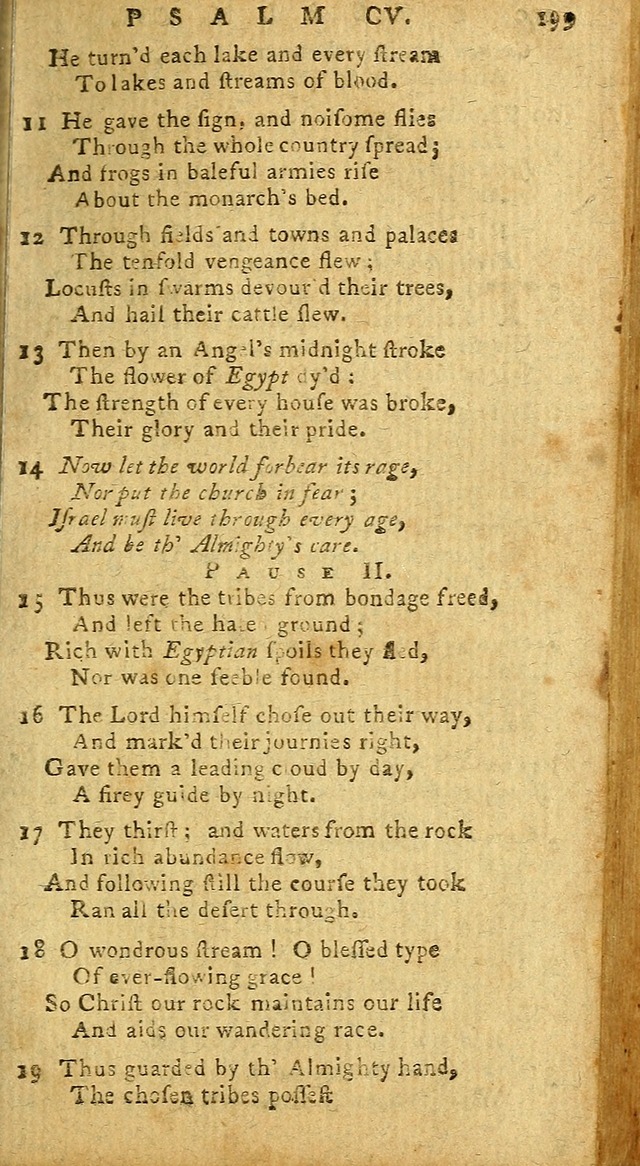 PSALM CV. 199
He turn'd each lake and every ſtream
To lakes and ſtreams of blood.
11 He gave the ſign, and noiſome flies
Through the whole country ſpread;
And frogs in baleful armies riſe
About the monarch's bed.
12 Through fields and towns and palaces
The tenfold vengeance flew;
Locuſts in ſwarms devour'd their trees,
And hail their cattle ſlew.
13 Then by an Angel's midnight ſtroke
The flower of Egypt dy'd:
The ſtrength of every houſe was broke,
Their glory and their pride.
14 Now let the world forbear its rage,
Nor put the church in fear;
Iſrael muſt live through every age,
And be th' Almighty's care.
PAUSE II.
15 Thus were the tribes from bondage freed,
And left the hated ground;
Rich with Egyptian ſpoils they fled,
Nor was one feeble found.
16 The Lord himſelf choſe out their way,
And mark'd their journies right,
Gave them a leading cloud by day,
A firey guide by night.
17 They thirſt; and waters from the rock
In rich abundance flow,
And following ſtill the courſe they took
Ran all the deſert through.
18 O wondrous ſtream! O bleſſed type
Of ever-flowing grace!
So Chriſt our rock maintains our life
And aids our wandering race.
19 Thus guarded by th' Almighty hand,
The choſen tribes poſſeſt